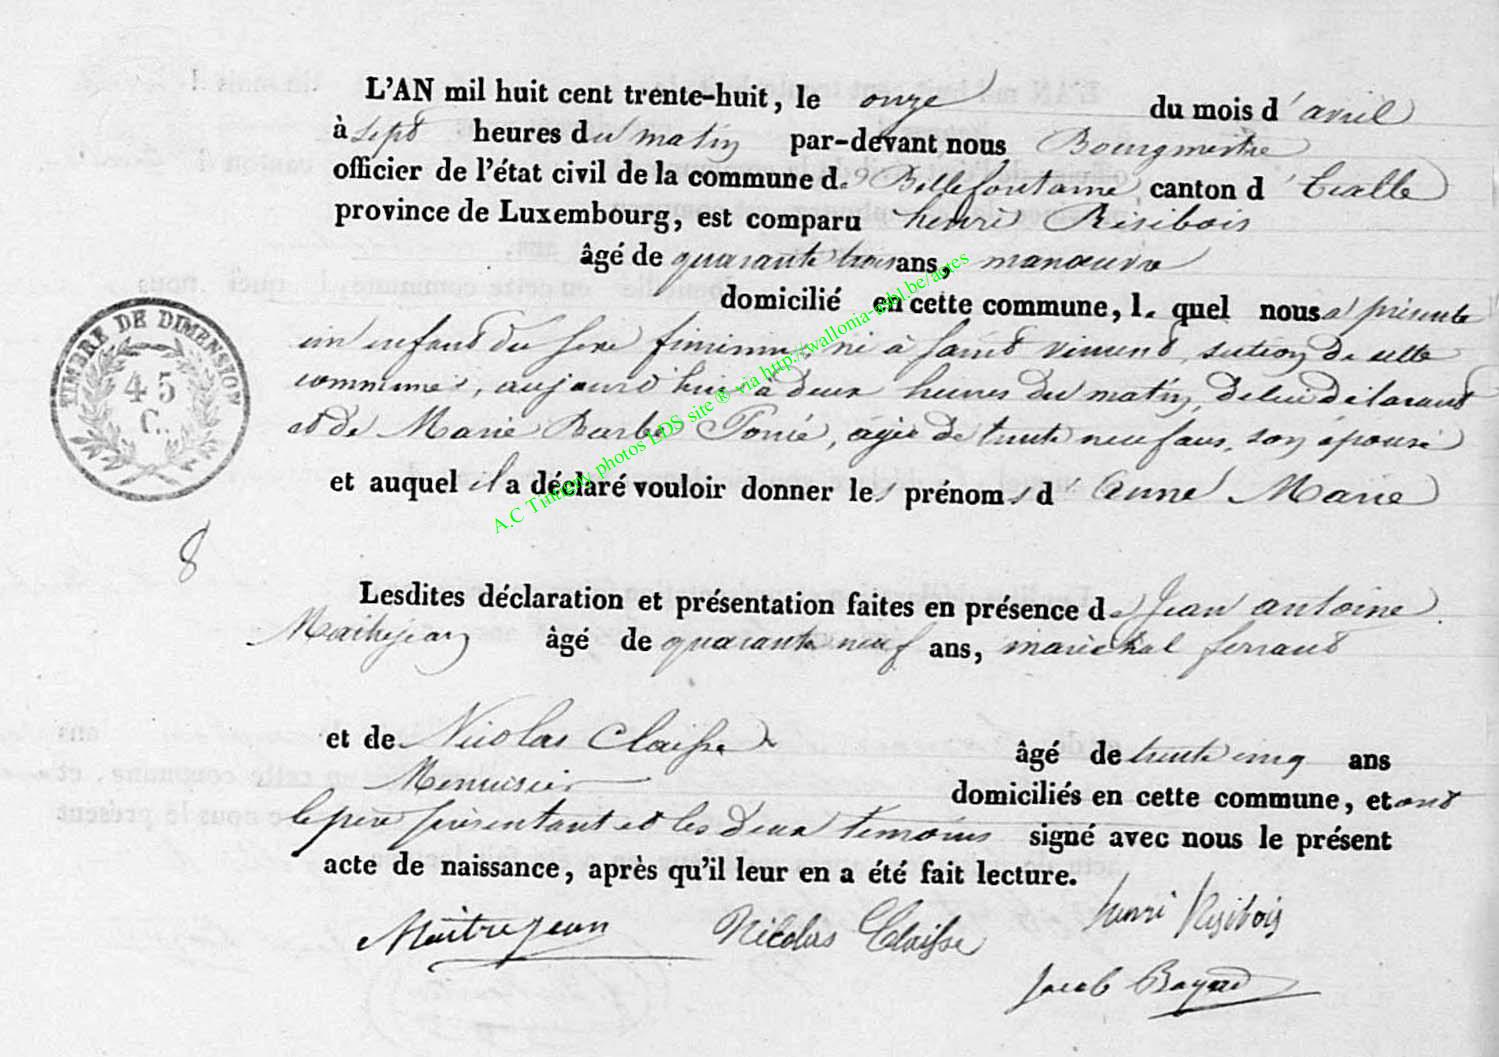 L'AN mil huit cent trente-huit, le onze du mois d'avril
à sept heures du matin par-devant nous Bourgmestre
officier de l'état civil de la commune de Bellefontaine canton d'Etalle
province de Luxembourg, est comparu henri Résibois
âgé de quarante trois ans, manœuvre
domicilié en cette commune, l. quel nous a présenté
un enfant du sexe féminin, né à Saint Vincent, section de cette
commune, aujourd'hui à deux heures du matin, de lui déclarant
et de Marie Barbe, agée de trente neuf ans, son épouse
et auquel il a déclaré vouloir donner les prénoms d'Anne Marie
TIMBRE DE DIMENSION
45
C.
8
Lesdites déclaration et présentation faites en présence de Jean antoine
Maitrejean âgé de quarante neuf ans, maréchal ferrant
et de Nicolas Claisse âgé de trente cinq ans
Menuisier domiciliés en cette commune, et ont
le père présentant et les deux témoins signé avec nous le présent
acte de naissance, après qu'il leur en a été fait lecture.
Maîtrejean Nicolas Claisse henri Résibois
Jacob
A.C Tintigny photos LDS site ® via http://wallonia-asbl.be/actes